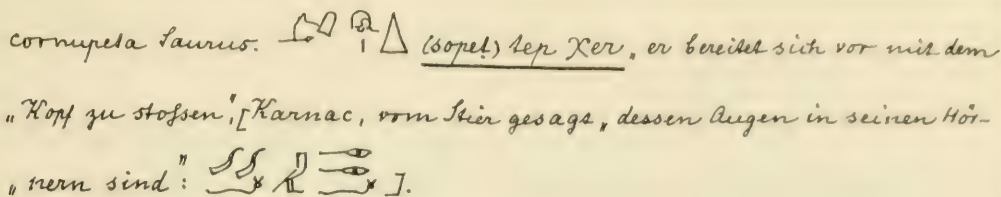 cornupeta taurus. (sopet) tep χer „er bereitet sich vor mit dem
„Kopf zu stossen“, [Karnac, vom Stier gesagt, „dessen Augen in seinen Hör-
„nern sind“: ].